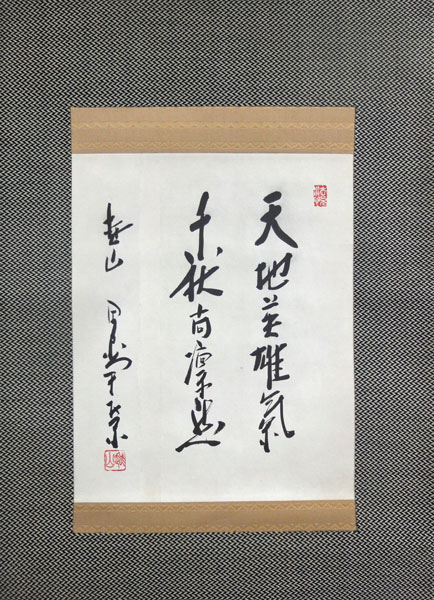 天地英雄氣
千秋尚凛然
山